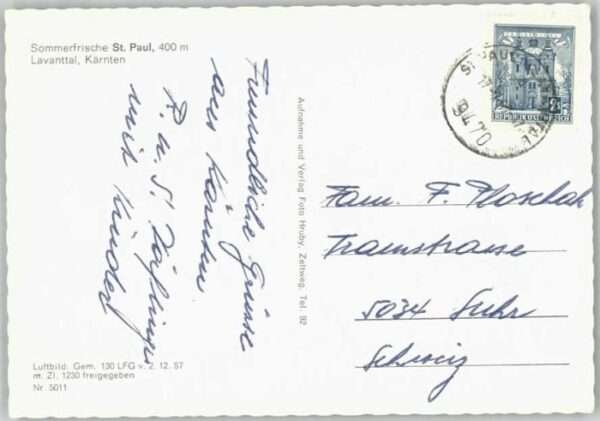 Sommerfrische St. Paul, 400 m
Lavanttal, Kärnten
Freundliche Grüsse
aus Kärnten
R. u. S.
mit Kinder
Aufnahme und Verlag Foto Hruby, Zeltweg, Tel. 92
REPUBLIK ÖSTERREICH
ST. PAUL
9470
Fam. F.
Tramstrasse
5034 Suhr
Schweiz
Luftbild: Gem. 130 LFG v. 2. 12. 57
m. Zl. 1230 freigegeben
Nr. 5011